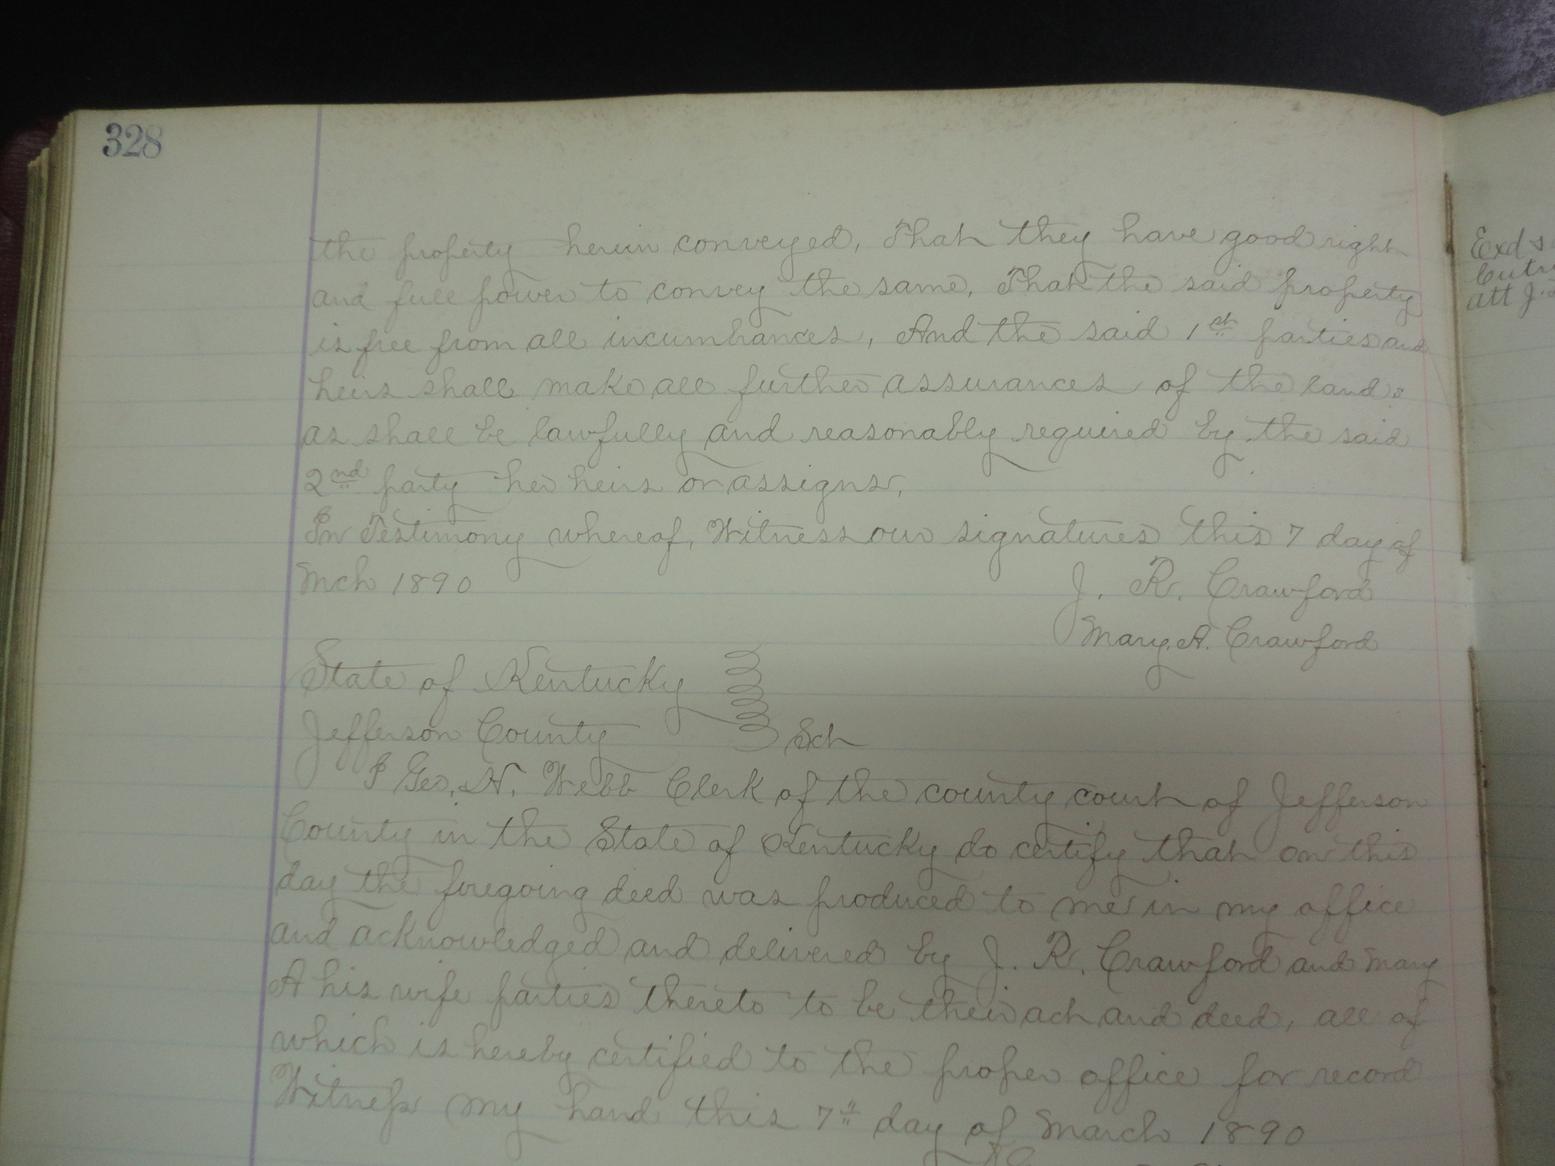 328
the property herein conveyed, That they have good right
and full power to convey the same, That the said property
is free from all incumbrances, And the said 1st parties and
heirs shall make all further assurances of the land
as shall be lawfully and reasonably required by the said
2nd party her heirs or assigns,
In Testimony whereof, Witness our signatures this 7 day of
Mch 1890
J. R. Crawford
Mary A. Crawford
State of Kentucky
Jefferson County } Sch
I Geo. H. Webb Clerk of the county court of Jefferson
County in the State of Kentucky do certify that on this
day the foregoing deed was produced to me in my office
and acknowledged and delivered by J. R. Crawford and Mary
A his wife parties thereto to be their act and deed, all of
which is hereby certified to the proper office for record
Witness my hand this 7th day of March 1890
Exd &
att J.